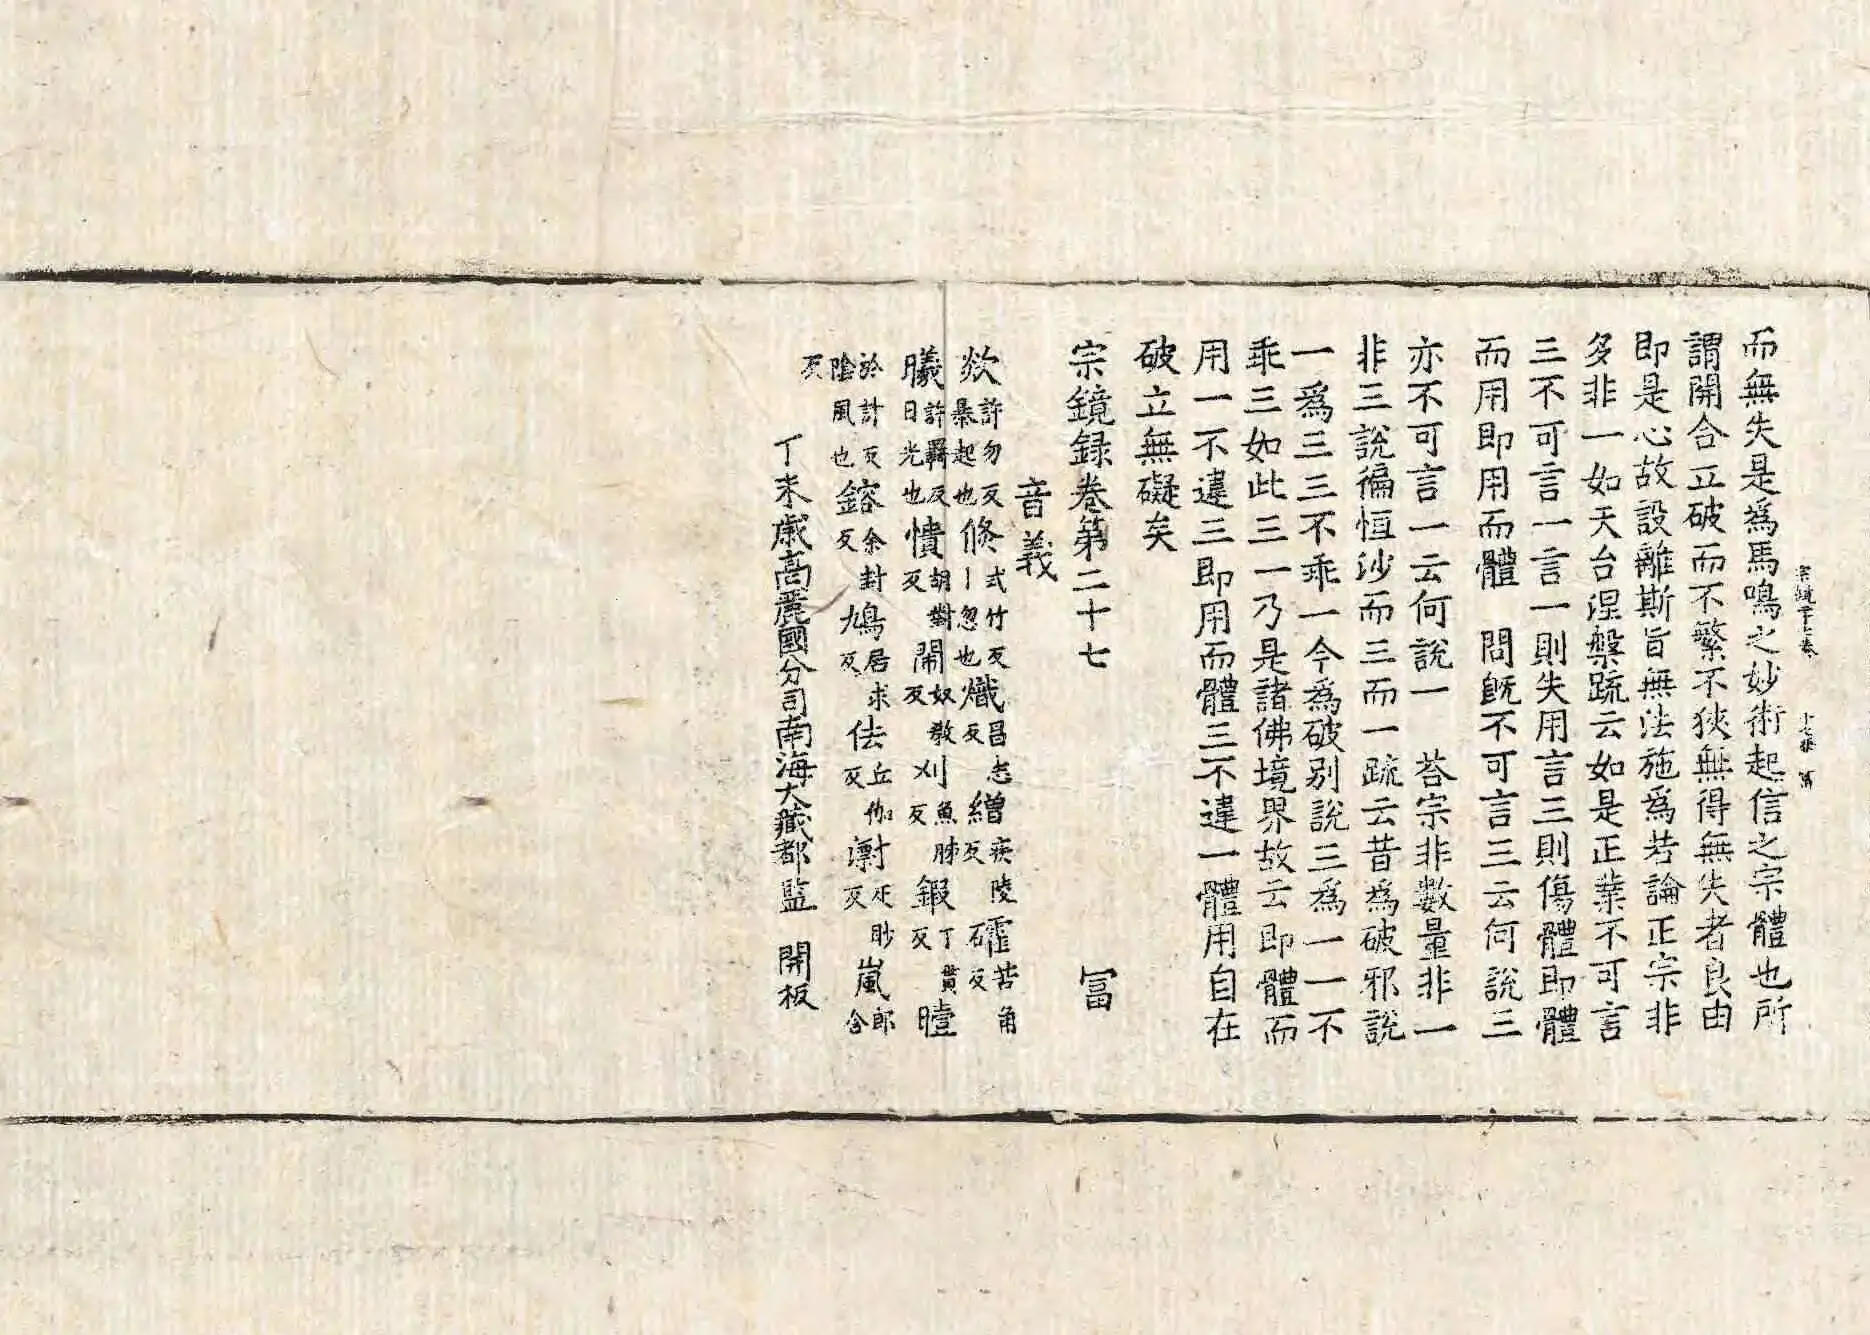 宗鏡二十七卷 十七張 富
而無失是爲馬鳴之妙術起信之宗體也所
謂開合立破而不繁不狹無得無失者良由
即是心故設離斯旨無法施爲若論正宗非
多非一如天台涅槃疏云如是正業不可言
三不可言一言一則失用言三則傷體即體
而用即用而體 問旣不可言三云何說三
亦不可言一云何說一 荅宗非數量非一
非三說徧恒沙而三而一疏云昔爲破邪說
一爲三三不乖一今爲破別說三爲一一不
乖三如此三一乃是諸佛境界故云即體而
用一不違三即用而體三不違一體用自在
破立無礙矣
宗鏡録卷第二十七 富
音義
欻許勿反暴起也倏式竹反丨忽也熾昌志反繒疾陵反確苦角反
曦許羈反日光也憒胡對反閙奴教反刈魚肺反鍛丁貫反曀
於計反陰風也鎔余封反鳩居求反佉丘伽反嵐郎含
反
丁未歲高麗國分司南海大藏都監 開板